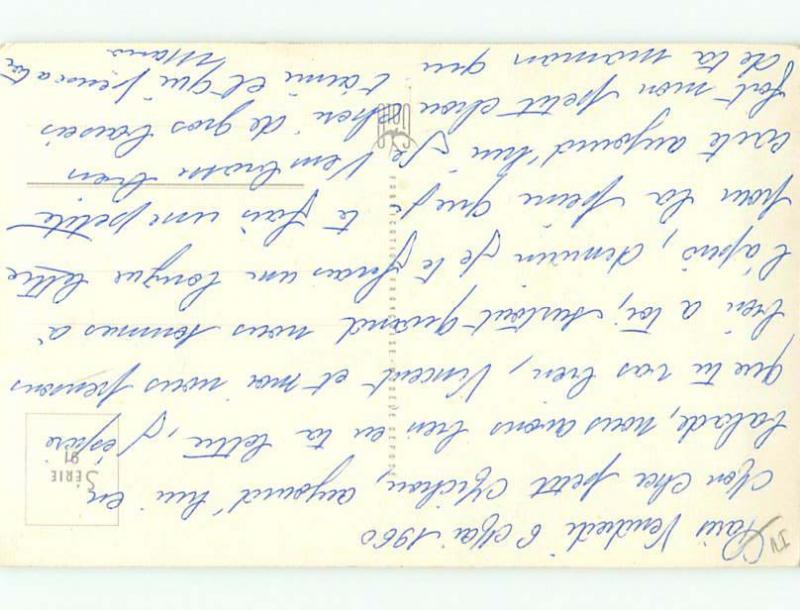 Paris Vendredi 6 Mai 1960
Mon cher petit Michou, aujourd'hui en
balade, nous avons bien eu ta lettre, j'espère
que tu vas bien, Vincent et moi nous pensons
bien à toi, surtout quand nous sommes à
l'apéro, demain je te ferais une longue lettre
pour la peine que je te fais une petite
carte aujourd'hui. Je t'embrasse bien
fort mon petit chou chéri de gros baisers
de ta maman qui t'aime et qui pense a toi
Mario
SÉRIE
91
FABRICATION FRANÇAISE -